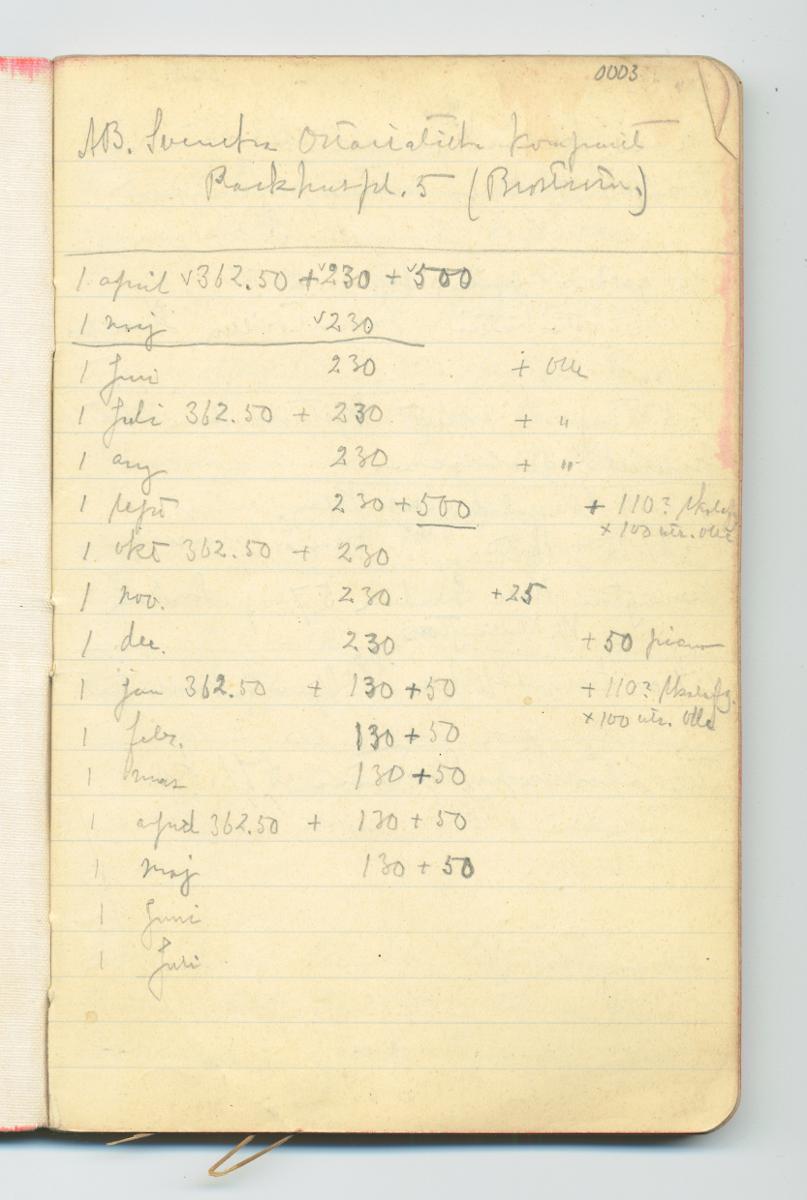 0003
AB. Svenska Ostasiatiska Kompaniet
Packhuspl. 5 (Broström.)
1 april √362.50 + √230 + √500
1 maj √230
1 juni 230 + Olle
1 juli 362.50 + 230 + "
1 aug 230 + "
1 sept 230 + 500 + 110?
× 100 utr. Olle
1 okt 362.50 + 230
1 nov. 230 + 25
1 dec. 230 + 50 piano
1 jan 362.50 + 130 + 50 + 110?
× 100 utr. Olle
1 febr. 130 + 50
1 mars 130 + 50
1 april 362.50 + 130 + 50
1 maj 130 + 50
1 juni
1 juli